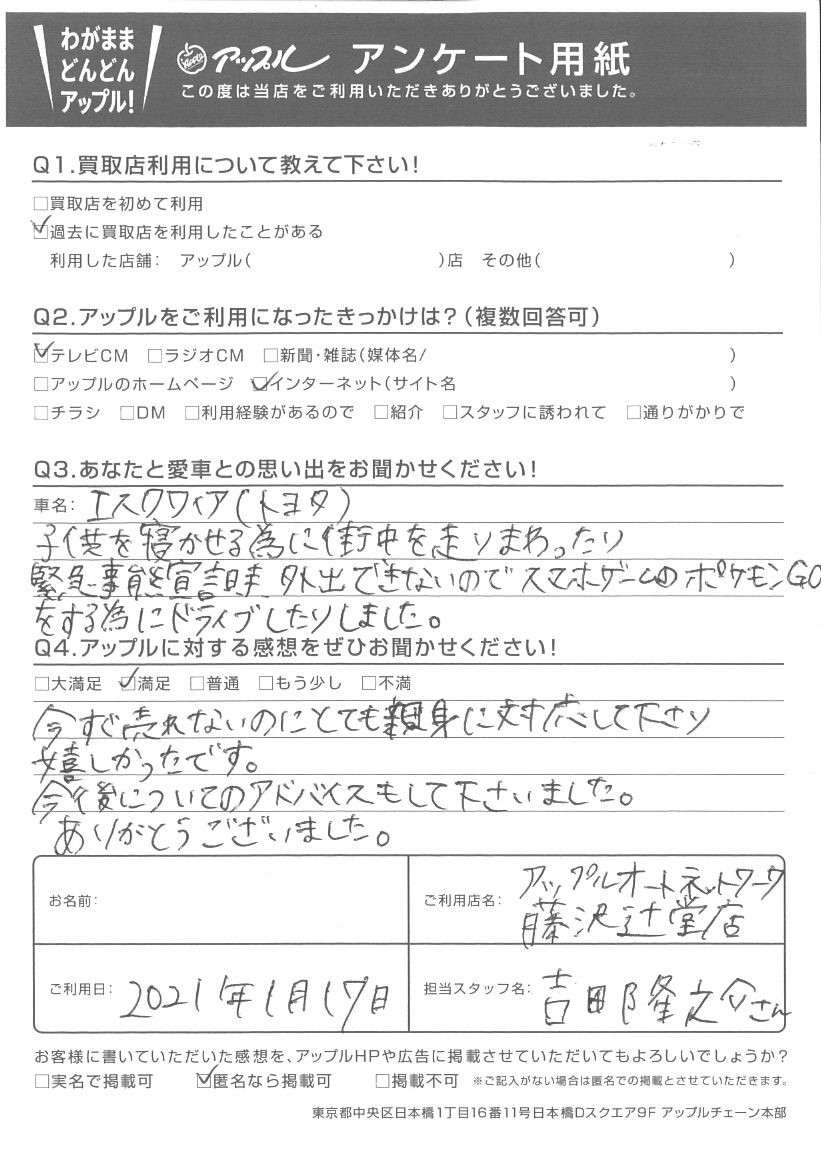 わがまま
どんどん
アップル!
Apple アップル アンケート用紙
この度は当店をご利用いただきありがとうございました。
Q1.買取店利用について教えて下さい!
□買取店を初めて利用
☑過去に買取店を利用したことがある
利用した店舗: アップル( )店 その他( )
Q2.アップルをご利用になったきっかけは?(複数回答可)
☑テレビCM □ラジオCM □新聞・雑誌(媒体名/ )
□アップルのホームページ ☑インターネット(サイト名 )
□チラシ □DM □利用経験があるので □紹介 □スタッフに誘われて □通りがかりで
Q3.あなたと愛車との思い出をお聞かせください!
車名: エスクワイア(トヨタ)
子供を寝かせる為に街中を走りまわったり
緊急事態宣言時 外出できないのでスマホゲームのポケモンGO
をする為にドライブしたりしました。
Q4.アップルに対する感想をぜひお聞かせください!
□大満足 ☑満足 □普通 □もう少し □不満
今すぐ売れないのにとても親身に対応して下さり
嬉しかったです。
今後についてのアドバイスもして下さいました。
ありがとうございました。
お名前:
ご利用店名: アップルオートネットワーク
藤沢辻堂店
ご利用日: 2021年1月17日
担当スタッフ名: 吉田隆之介さん
お客様に書いていただいた感想を、アップルHPや広告に掲載させていただいてもよろしいでしょうか?
□実名で掲載可 ☑匿名なら掲載可 □掲載不可 ※ご記入がない場合は匿名での掲載とさせていただきます。
東京都中央区日本橋1丁目16番11号日本橋Dスクエア9F アップルチェーン本部